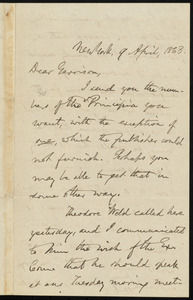 New York, 9 April, 1863.
Dear Garrison,
I send you the num-
bers of the Principia you
want, with the exception of
which the publisher could
not furnish. Perhaps you
may be able to get that in
some other way.
Theodore Weld called here
yesterday, and I communicated
to him the wish of the Ex.
Comee that he should speak
at our Tuesday morning meet-